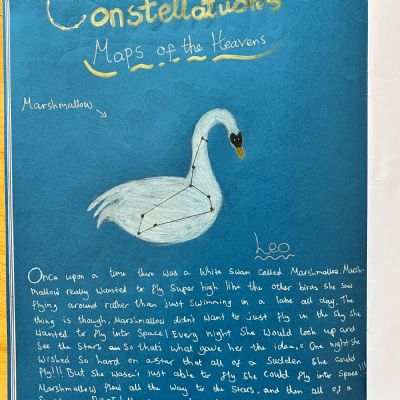 Constellations
Maps of the Heavens
Marshmallow
Leo
Once upon a time there was a white swan called Marshmallow. Marsh-
mallow really wanted to fly super high like the other birds she saw
flying around rather than just swimming in a lake all day. The
thing is though, Marshmallow didn't want to just fly in the sky she
wanted to fly into Space! Every night she would look up and
see the stars so that's what gave her the idea. One night she
wished so hard on a star that all of a sudden she could
fly!!! But she wasn't just able to fly she could fly into space!!!
Marshmallow flew all the way to the stars, and then all of a